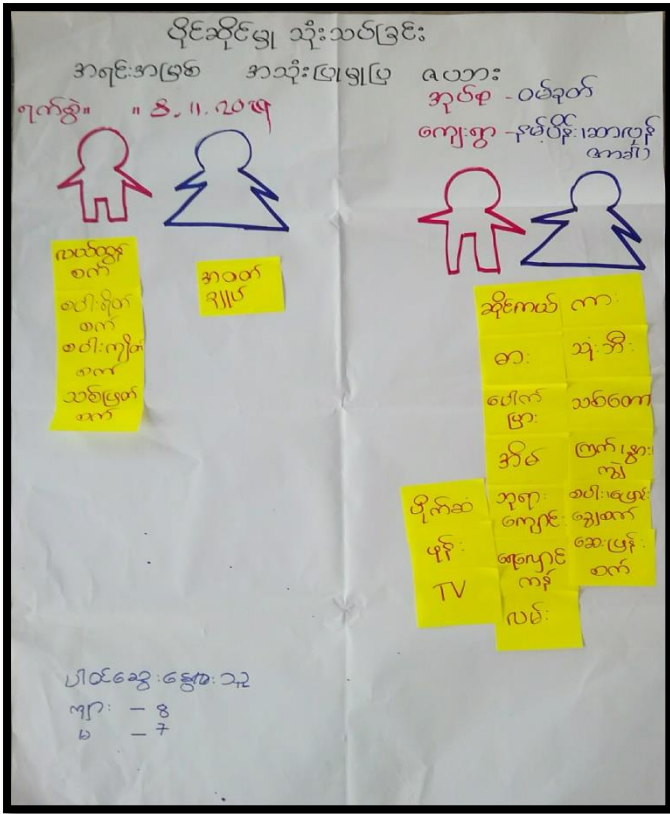 ပိုင်ဆိုင်မှု သုံးသပ်ခြင်း
အရင်းအမြစ် အသုံးပြုမှုပြ ဇယား
ရက်စွဲ။ ။ 8.11.2019
အုပ်စု - ဝမ်ခုတ်
ကျေးရွာ - နမ့်ပိန်း၊
လယ်ထွန်
စက်
စပါးရိတ်
စက်
စပါးကျိတ်
စက်
သစ်ဖြတ်
စက်
အဝတ်
ချုပ်
ဆိုင်ကယ် ကား
ဓား သုံးဘီး
ပေါက်
မြား
သစ်တော
အိမ်
ကြက်၊နွား၊
ကျွဲ
ပိုက်ဆံ
ဘုရား
ကျောင်း
စပါး၊ပြောင်း
ချွေစက်
ဖုန်း
ရေလှောင်
ကန်
ဆေးဖြန်း
စက်
TV
လမ်း
ပါဝင်ဆွေးနွေးသူ
ကျား - 8
မ - 7